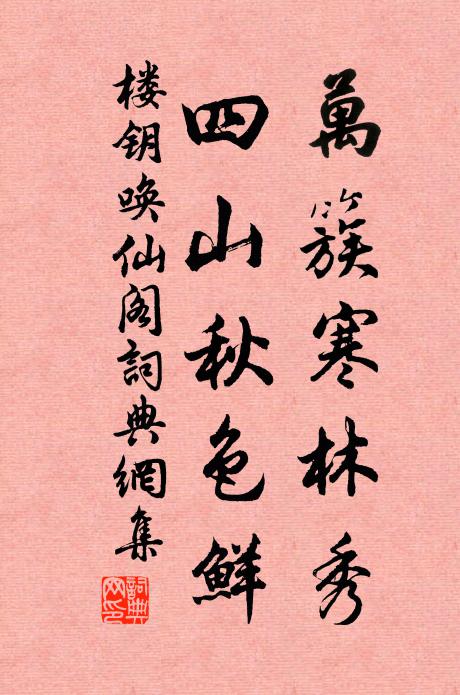 萬簇寒林秀
四山秋色鮮
楼鑰唤仙阁詞典網集
詞典网印